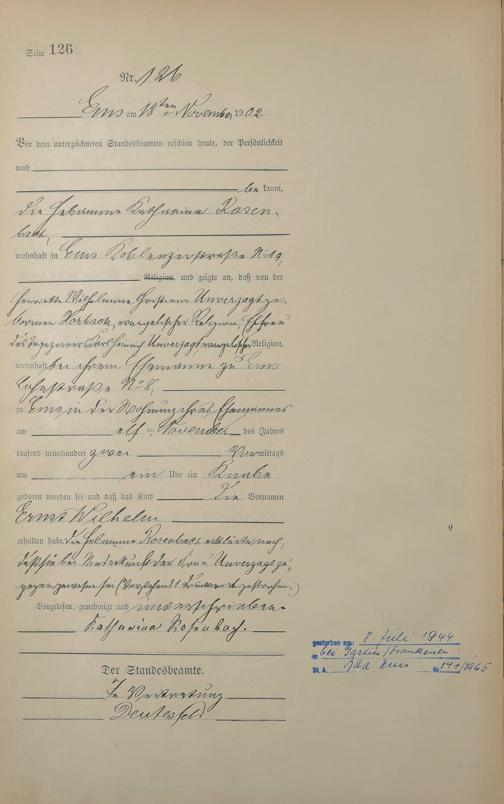 Seite 126
Nr. 126
Ems am 18ten November 1902
Vor dem unterzeichneten Standesbeamten erschien heute, der Persönlichkeit
nach
be kannt,
die Hebamme Katharina Rosen-
bach,
wohnhaft in Ems Koblenzerstraße No 19,
Religion, und zeigte an, daß von der
Henriette Wilhelmine Christiane Unverzagt ge-
borenen Horbach, evangelischer Religion, Ehefrau
des Heinrich Unverzagt evangelischer Religion,
wohnhaft bei ihrem Ehemanne zu Ems
No 8,
zu Ems in der Wohnung ihres Ehemannes
am elf ten November des Jahres
tausend neunhundert zwei Vormittags
um ein Uhr ein Knabe
geboren worden sei und daß das Kind die Vornamen
Ernst Wilhelm
erhalten habe. Die Hebamme Rosenbach erklärte noch,
daß sie bei Niederkunft der Frau Unverzagt zu-
gegen gewesen sei. (Vorstehend 1 Druckwort gestrichen.)
Vorgelesen, genehmigt und unterschrieben
Katharina Rosenbach.
Der Standesbeamte.
In Vertretung
gestorben am: 8. Juli 1944
in bei
St. A. Bad Ems Nr. 141/1965